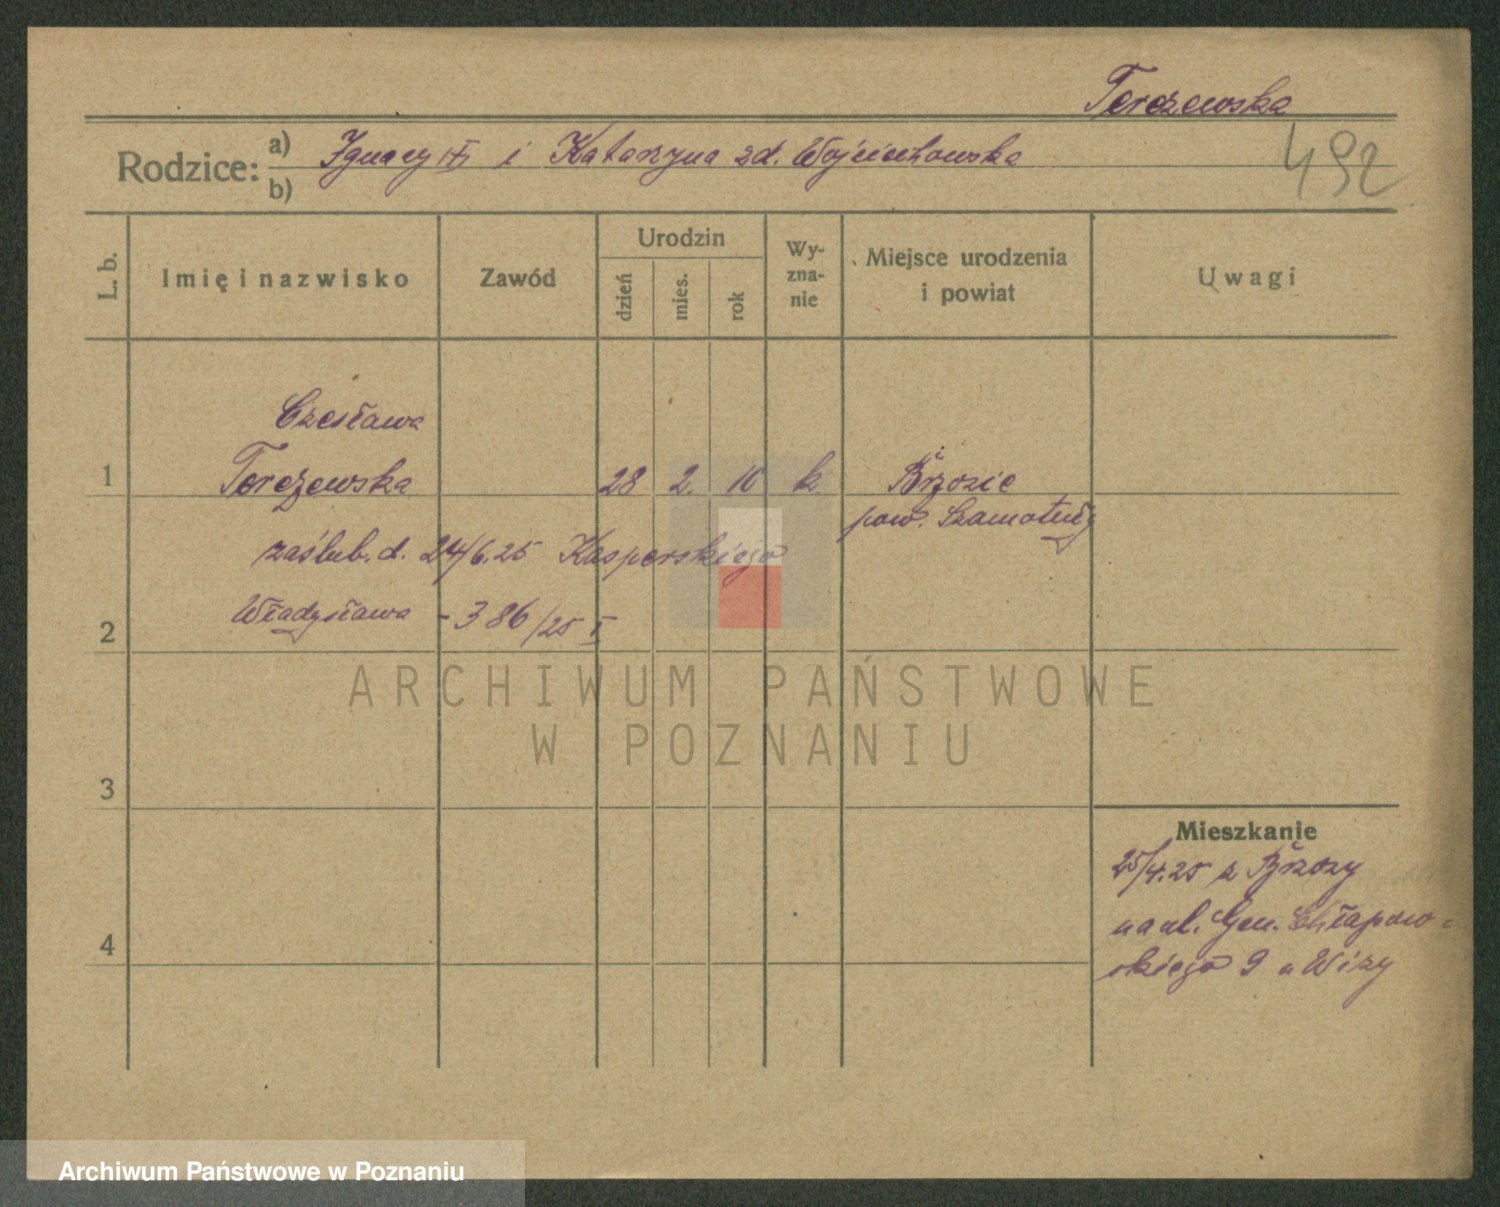 Terczewska
492
Rodzice: a) Ignacy i Katarzyna zd. Wojciechowska
b)
L. b.
Imię i nazwisko
Zawód
Urodzin
dzień
mies.
rok
Wy-
zna-
nie
Miejsce urodzenia
i powiat
Uwagi
Czesława
1 Terczewska 28 2. k Brzozie
pow. Szamotuły
zaślub. d. 24/6.25 Kasperskiego
2 Władysława - 386/25 I
ARCHIWUM PAŃSTWOWE
W POZNANIU
3
Mieszkanie
25/4.25 z Brzozy
na ul. Gen. Chłapow-
4 skiego 9 u Wizy
Archiwum Państwowe w Poznaniu